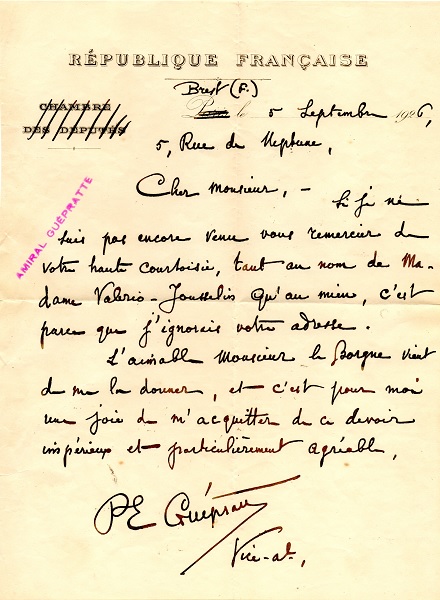 RÉPUBLIQUE FRANÇAISE
Brest (F.)
CHAMBRE
DES DÉPUTÉS
Paris, le 5 Septembre 1926,
5, Rue de Neptune,
AMIRAL GUÉPRATTE
Cher Monsieur, -
Si je ne
suis pas encore venu vous remercier de
votre haute courtoisie, tant au nom de Ma-
dame Valerio-Jousselin qu'au mien, c'est
parce que j'ignorais votre adresse.
L'aimable Monsieur le Borgne vient
de me la donner, et c'est pour moi
une joie de m'acquitter de ce devoir
impérieux et particulièrement agréable.
PE Guépratte
Vice-al.,